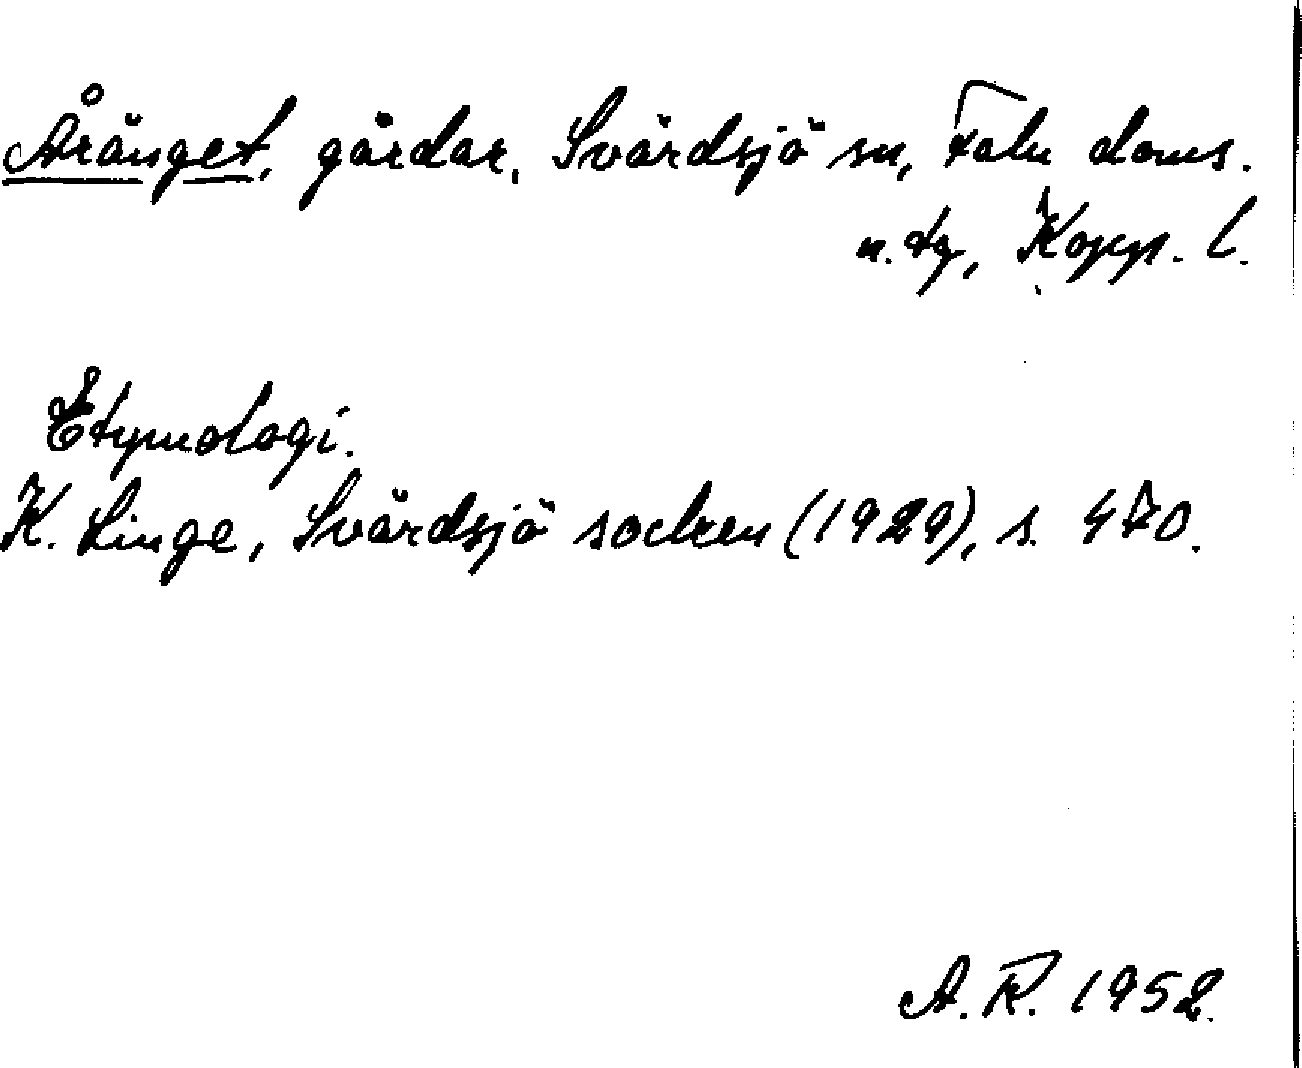 Åränget, gårdar, Svärdsjö sn, Falu doms.
n. tg, Kopp. l.
Etymologi.
K. Linge, Svärdsjö socken (1929), s. 470.
A. R. 1952.